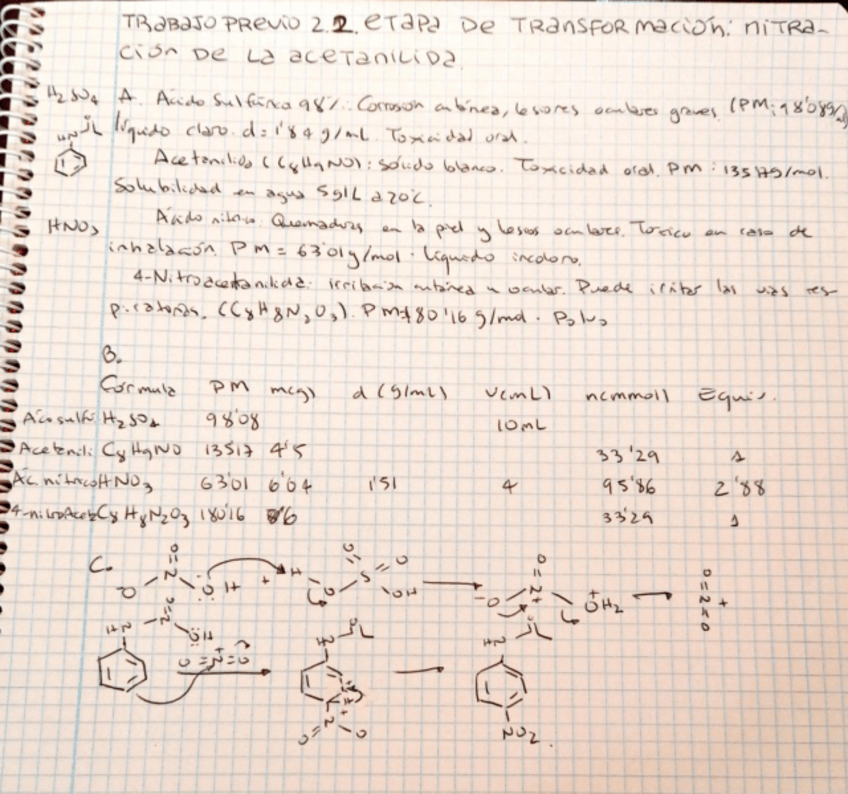 TRABAJO PREVIO 2.2. ETAPA DE TRANSFORMACIÓN: NITRA-
CIÓN DE LA ACETANILIDA.
H₂SO₄ A. Ácido sulfúrico 98%: Corrosión cutánea, lesiones oculares graves. (PM: 98'08g/
líquido claro. d=1'84 g/mL. Toxicidad oral.
HN
Acetanilida (C₈H₉NO): sólido blanco. Toxicidad oral. PM: 135'17g/mol.
Solubilidad en agua 5g/L a 20°C.
HNO₃ Ácido nítrico. Quemaduras en la piel y oculares. Tóxico en caso de
inhalación. PM = 63'01g/mol. Líquido incoloro.
4-Nitroacetanilida: irritación cutánea u ocular. Puede irritar las vías res-
piratorias. (C₈H₈N₂O₃). PM=180'16 g/mol. Polvo
B.
Fórmula PM m(g) d (g/mL) V(mL) n(mmol) Equiv.
H₂SO₄ 98'08 10mL
Acetanili: C₈H₉NO 135'17 4'5 33'29 1
Ác. nítrico HNO₃ 63'01 6'04 1'51 4 95'86 2'88
4-nitroAcet C₈H₈N₂O₃ 180'16 6 33'29 1
C.
O N O OH + H O S O O OH O N⁺ ⁻O ⁺OH₂ O N O +
HN OH O=N⁺=O HN N O O HN NO₂.